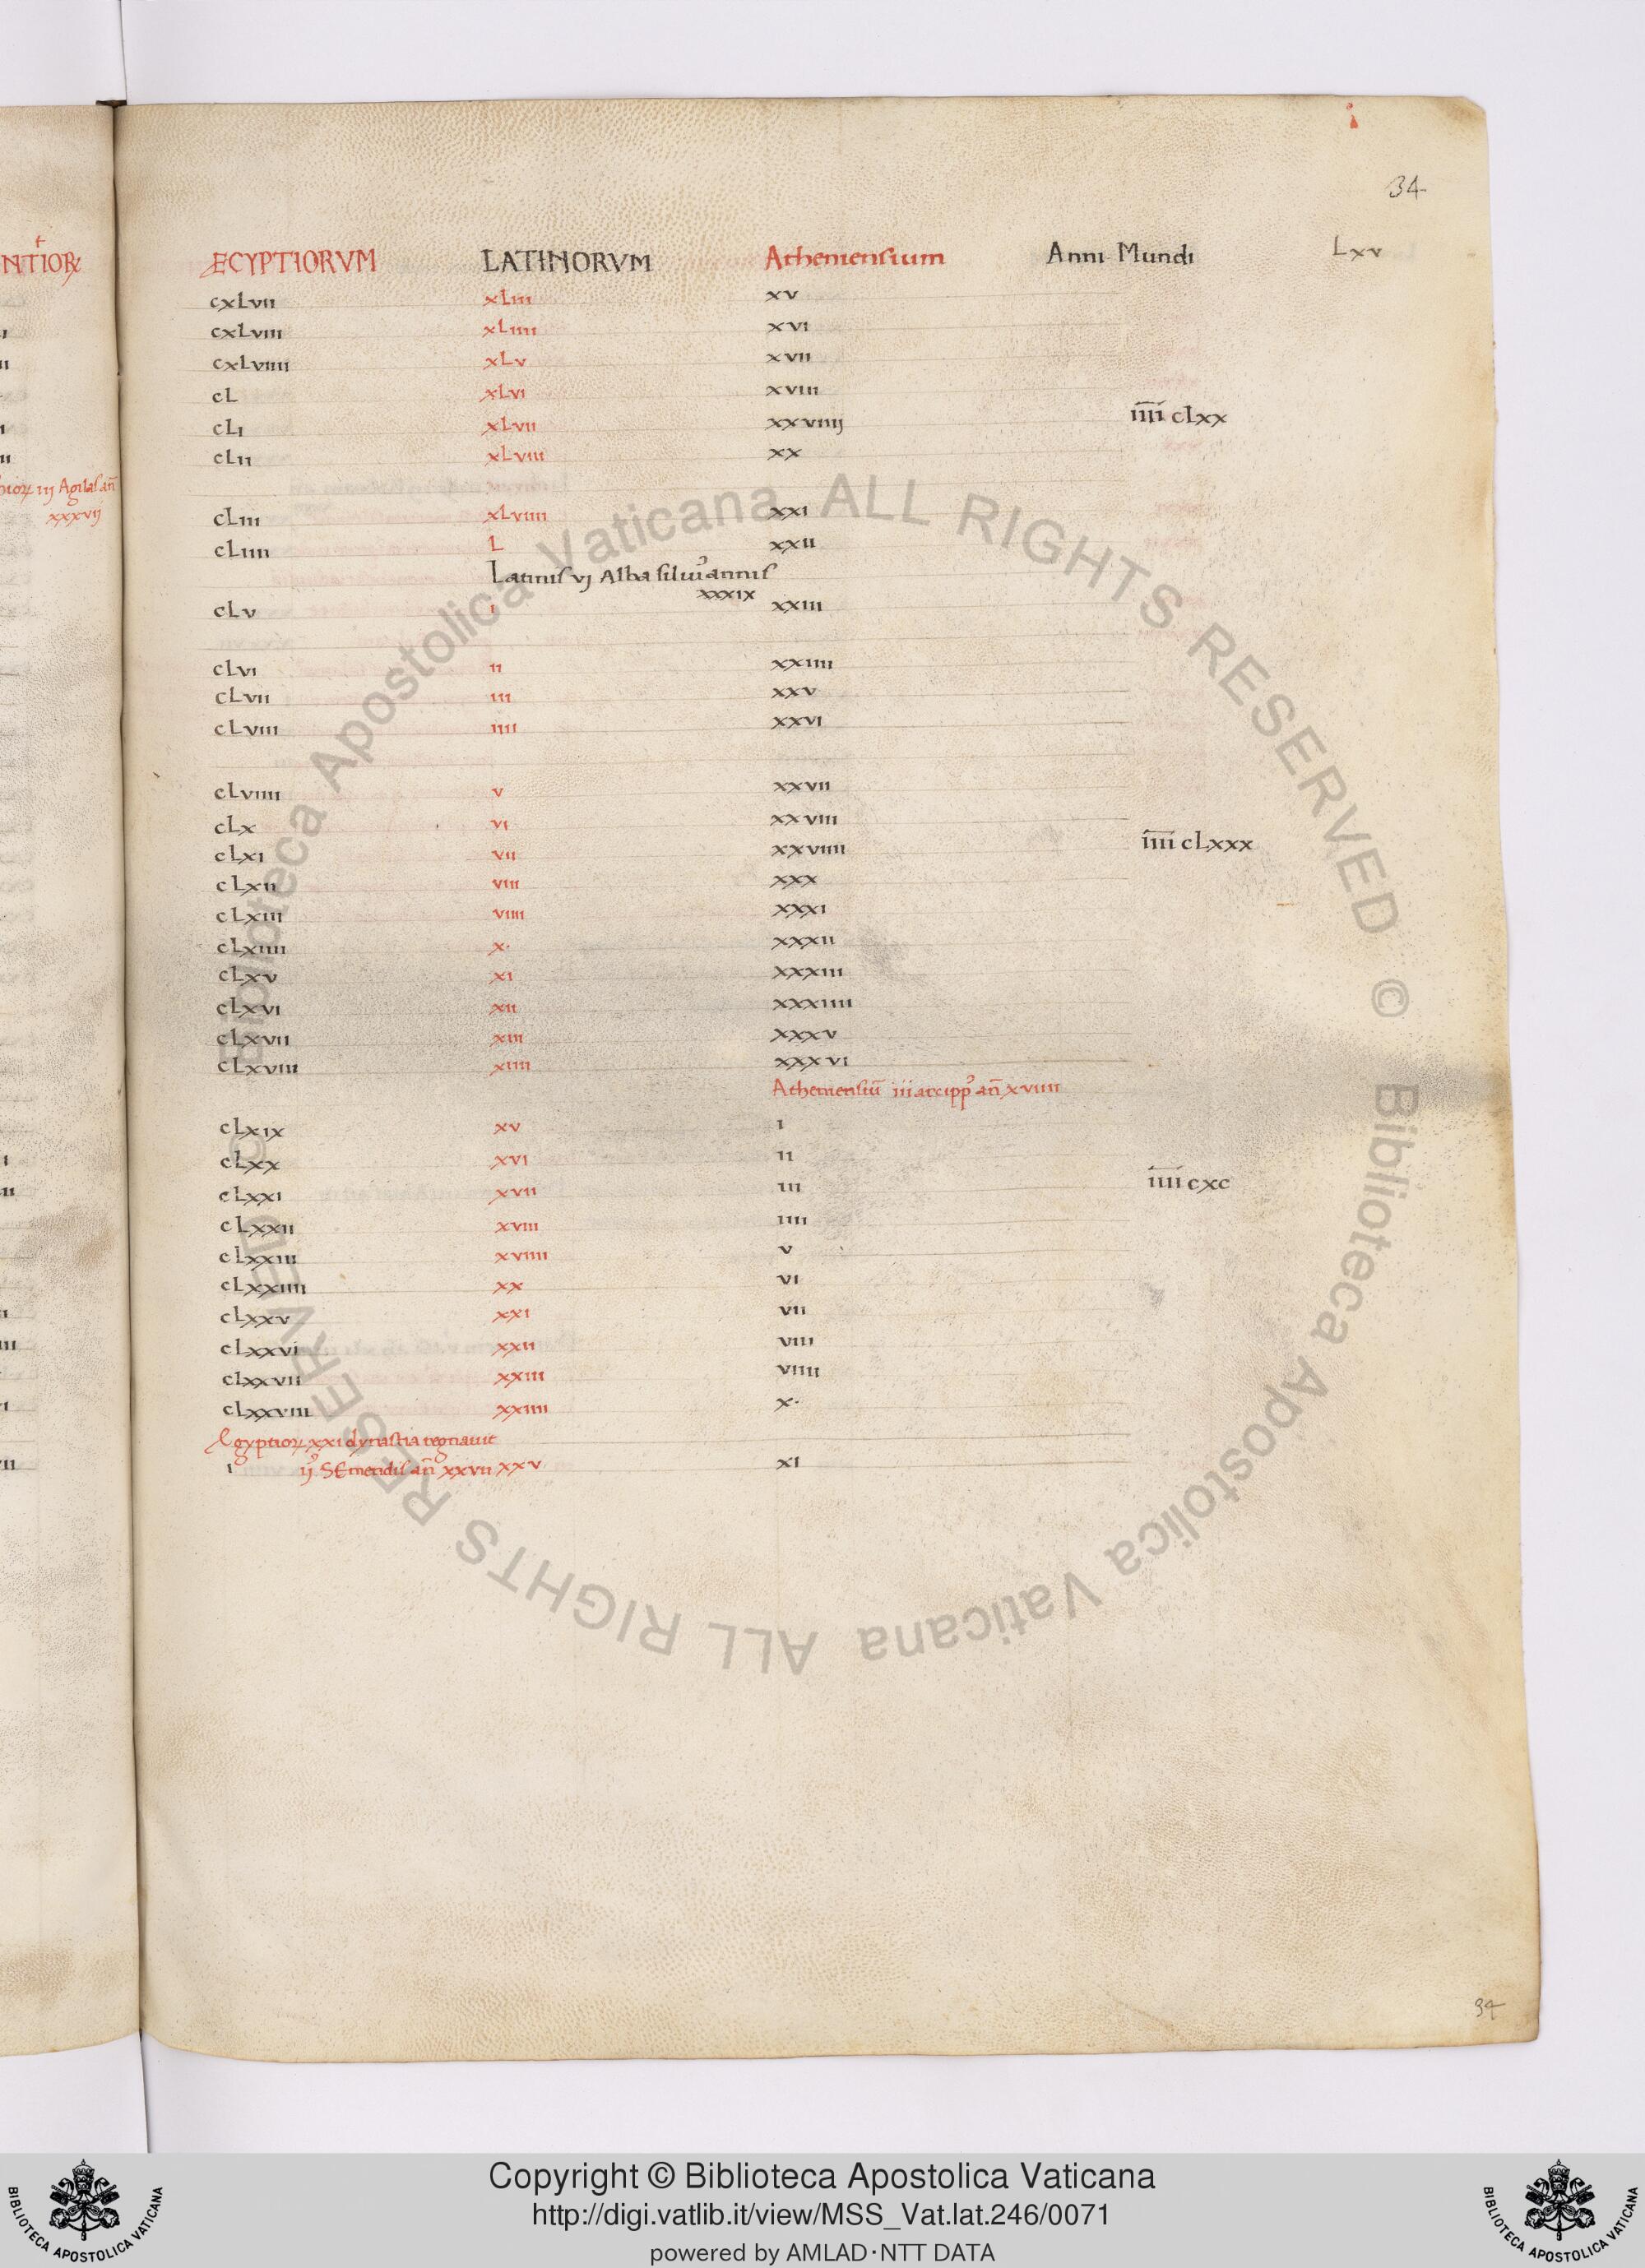 34
ECYPTIORVM LATINORVM Atheniensium Anni Mundi Lxv
cxLvii xLiii xv
cxLviii xLiiii xvi
cxLviiii xLv xvii
cL xLvi xviii
cLi xLvii xxviiij īīīī cLxx
cLii xLviii xx
cLiii xLviiii xxi
cLiiii L xxii
Latinis vj Alba silui' annis
xxxix
cLv i xxiii
cLvi ii xxiiii
cLvii iii xxv
cLviii iiii xxvi
cLviiii v xxvii
cLx vi xxviii
cLxi vii xxviiii īīīī cLxxx
cLxii viii xxx
cLxiii viiii xxxi
cLxiiii x· xxxii
cLxv xi xxxiii
cLxvi xii xxxiiii
cLxvii xiii xxxv
cLxviii xiiii xxxvi
Atheniensiū iii arcipp' an̄ xviiii
cLxix xv i
cLxx xvi ii
cLxxi xvii iii īīīī cxc
cLxxii xviii iiii
cLxxiii xviiii v
cLxxiiii xx vi
cLxxv xxi vii
cLxxvi xxii viii
cLxxvii xxiii viiii
cLxxviii xxiiii x·
Ægyptioꝝ xxi dynastia regnauit
i ij' SEmendis an̄ xxvii xxv xi
34
NTIOꝜ
iii Agilas an̄
xxxvij
© Biblioteca Apostolica Vaticana ALL RIGHTS RESERVED © Biblioteca Apostolica Vaticana ALL RIGHTS RESERVED
Copyright © Biblioteca Apostolica Vaticana
http://digi.vatlib.it/view/MSS_Vat.lat.246/0071
powered by AMLAD·NTT DATA
BIBLIOTECA APOSTOLICA VATICANA
BIBLIOTECA APOSTOLICA VATICANA